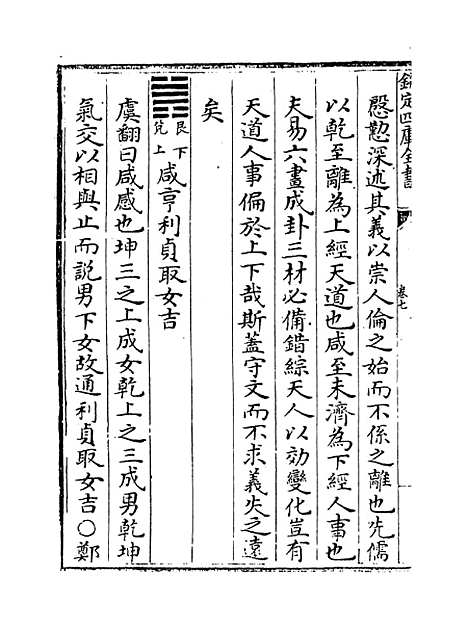 欽定四庫全書
卷七
慇懃深述其義以崇人倫之始而不係之離也先儒
以乾至離為上經天道也咸至未濟為下經人事也
夫易六畫成卦三材必備錯綜天人以効變化豈有
天道人事偏於上下哉斯蓋守文而不求義失之遠
矣
艮下
兌上
咸亨利貞取女吉
虞翻曰咸感也坤三之上成女乾上之三成男乾坤
氣交以相與止而說男下女故通利貞取女吉〇鄭